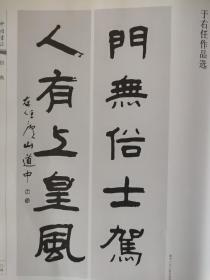 于右任作品选
門無俗士駕
人有上皇風
右任廬山道中